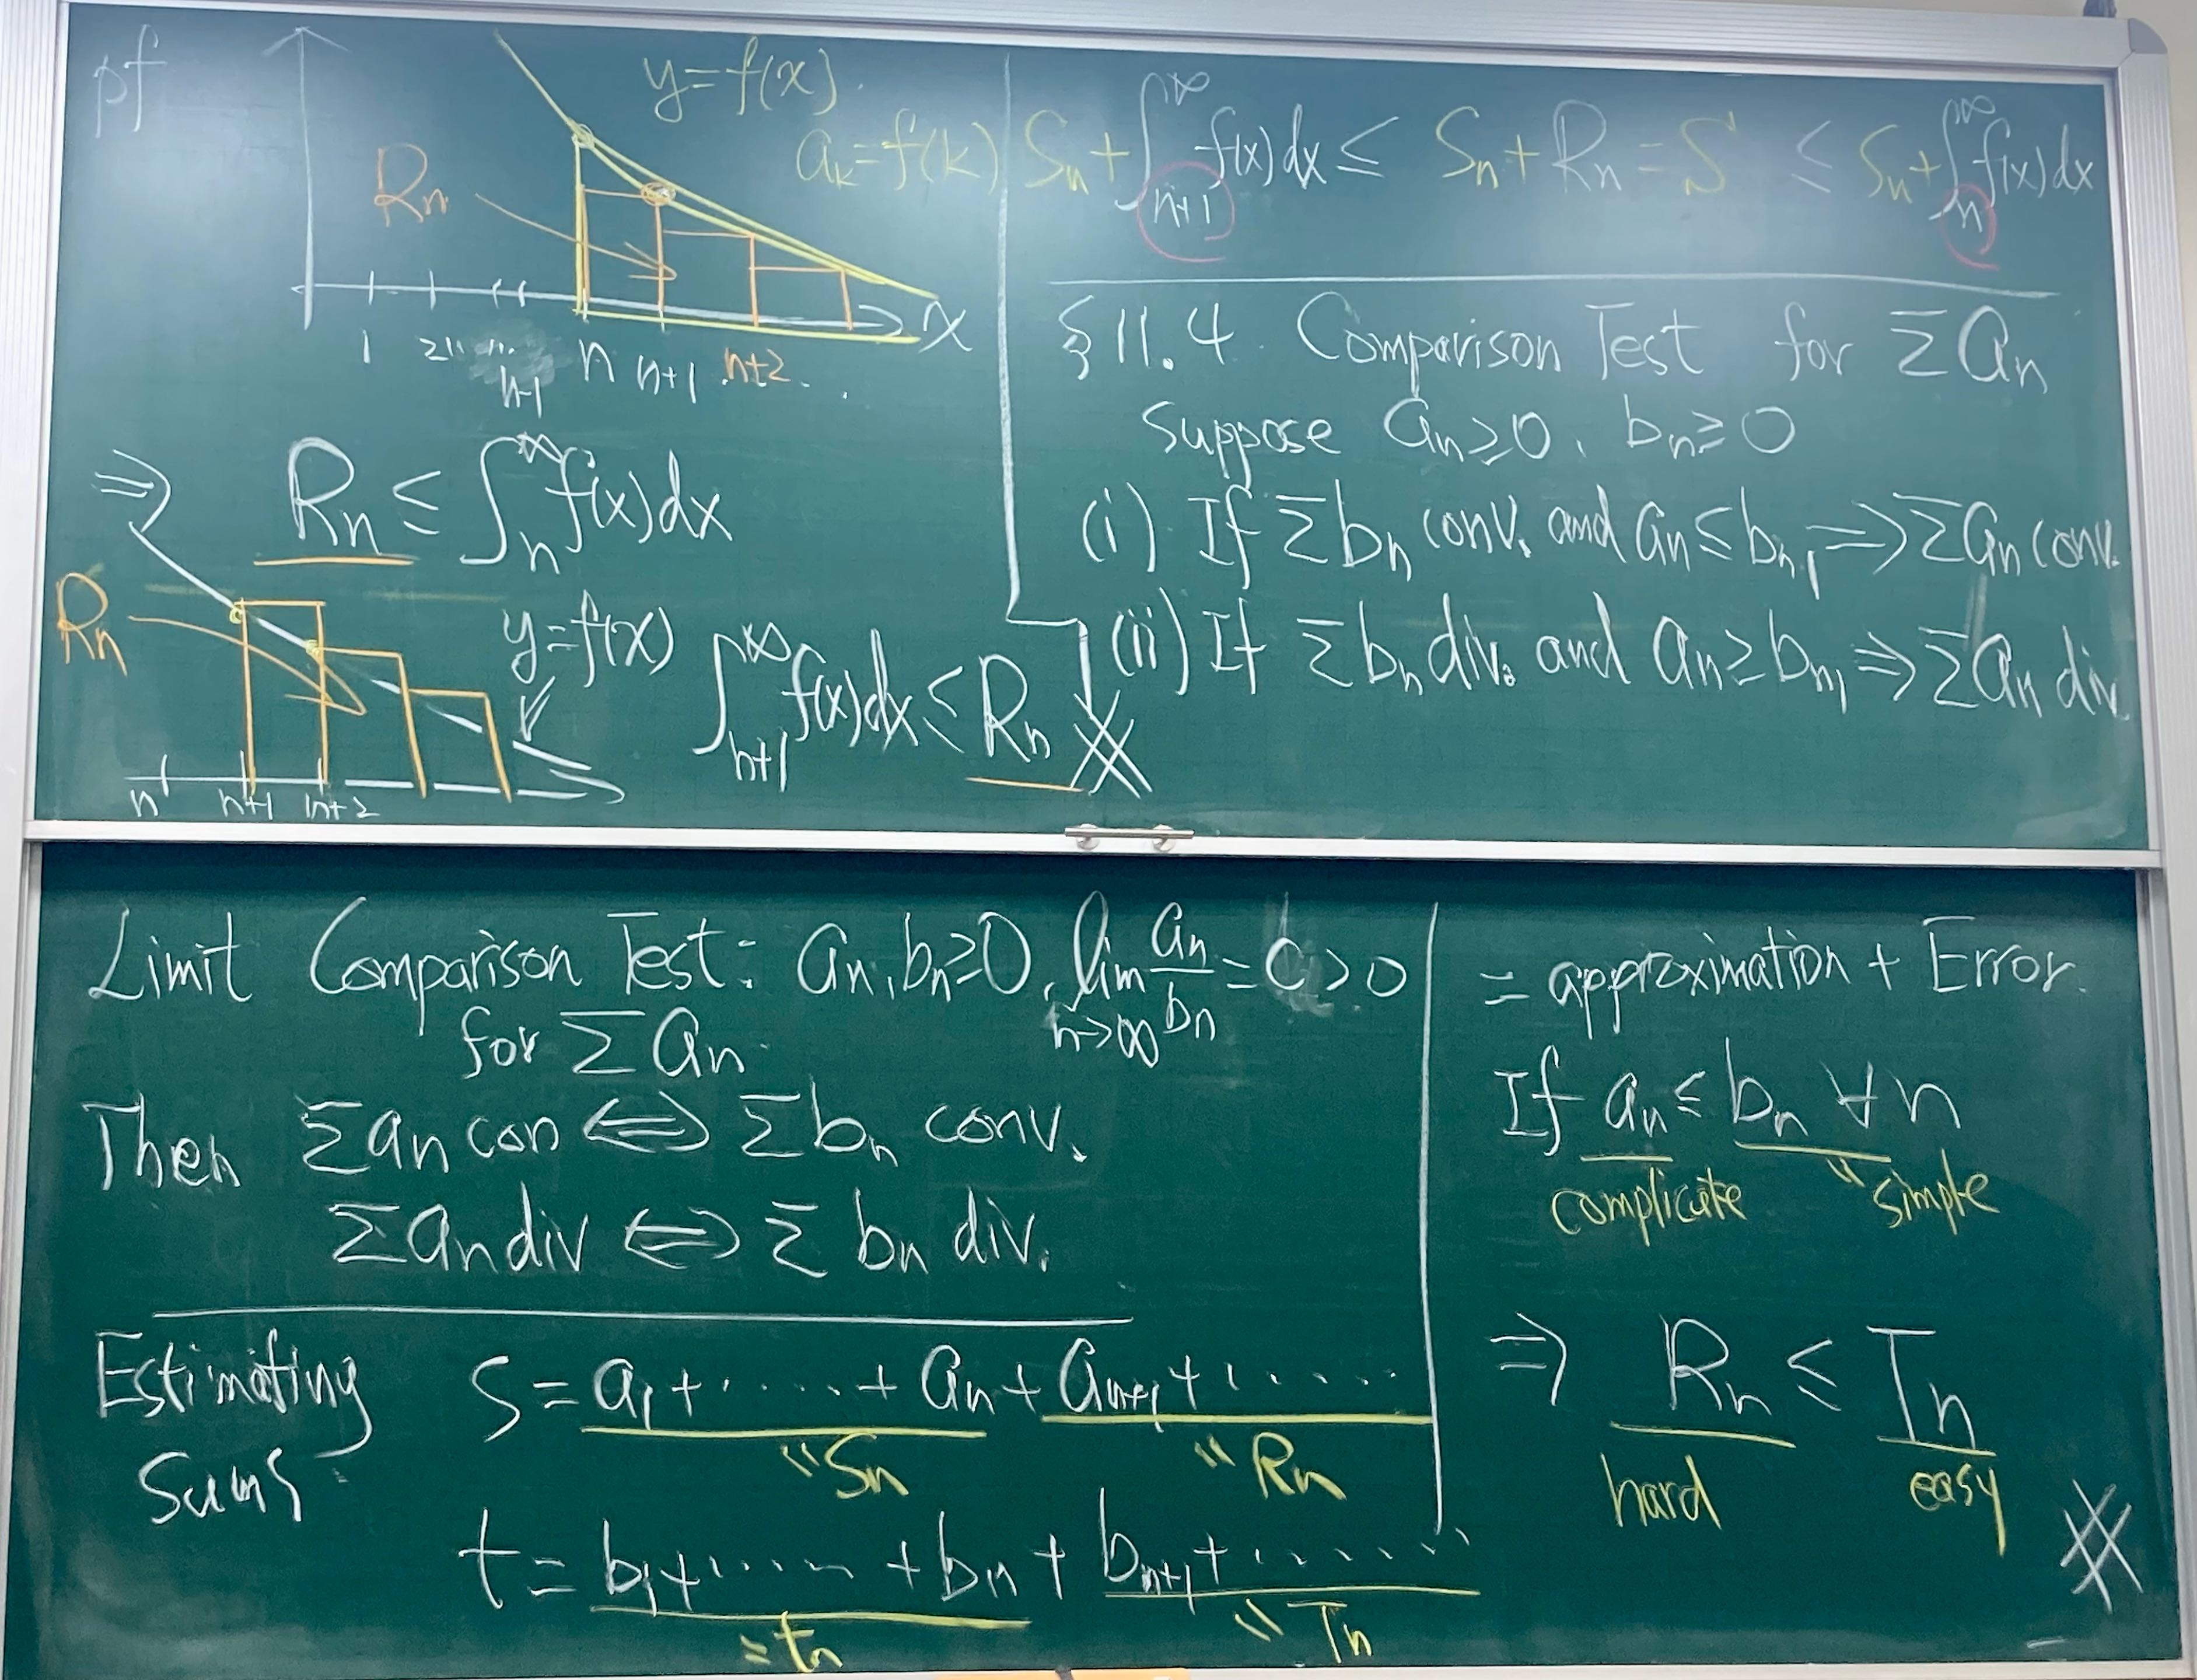 pf
y=f(x).
a_k=f(k)
R_n
x
1 2 ... n-1 n n+1 n+2 ...
⇒ R_n ≤ ∫_n^∞ f(x)dx
R_n
y=f(x)
n n+1 n+2
∫_{n+1}^∞ f(x)dx ≤ R_n
S_n+∫_{n+1}^∞ f(x)dx ≤ S_n+R_n=S ≤ S_n+∫_n^∞ f(x)dx
§11.4 Comparison Test for Σa_n
Suppose a_n≥0, b_n≥0
(i) If Σb_n conv. and a_n≤b_n, ⇒ Σa_n conv.
(ii) If Σb_n div. and a_n≥b_n, ⇒ Σa_n div
Limit Comparison Test: a_n, b_n≥0, lim_{n→∞} a_n/b_n = C>0
for Σa_n
Then Σa_n con ⇔ Σb_n conv.
Σa_n div ⇔ Σb_n div.
Estimating
Sums
S=a_1+.....+a_n+a_{n+1}+......
"S_n "R_n
t=b_1+.....+b_n+b_{n+1}+......
=t_n "T_n
= approximation + Error.
If a_n ≤ b_n ∀n
complicate "simple
⇒ R_n ≤ T_n
hard easy